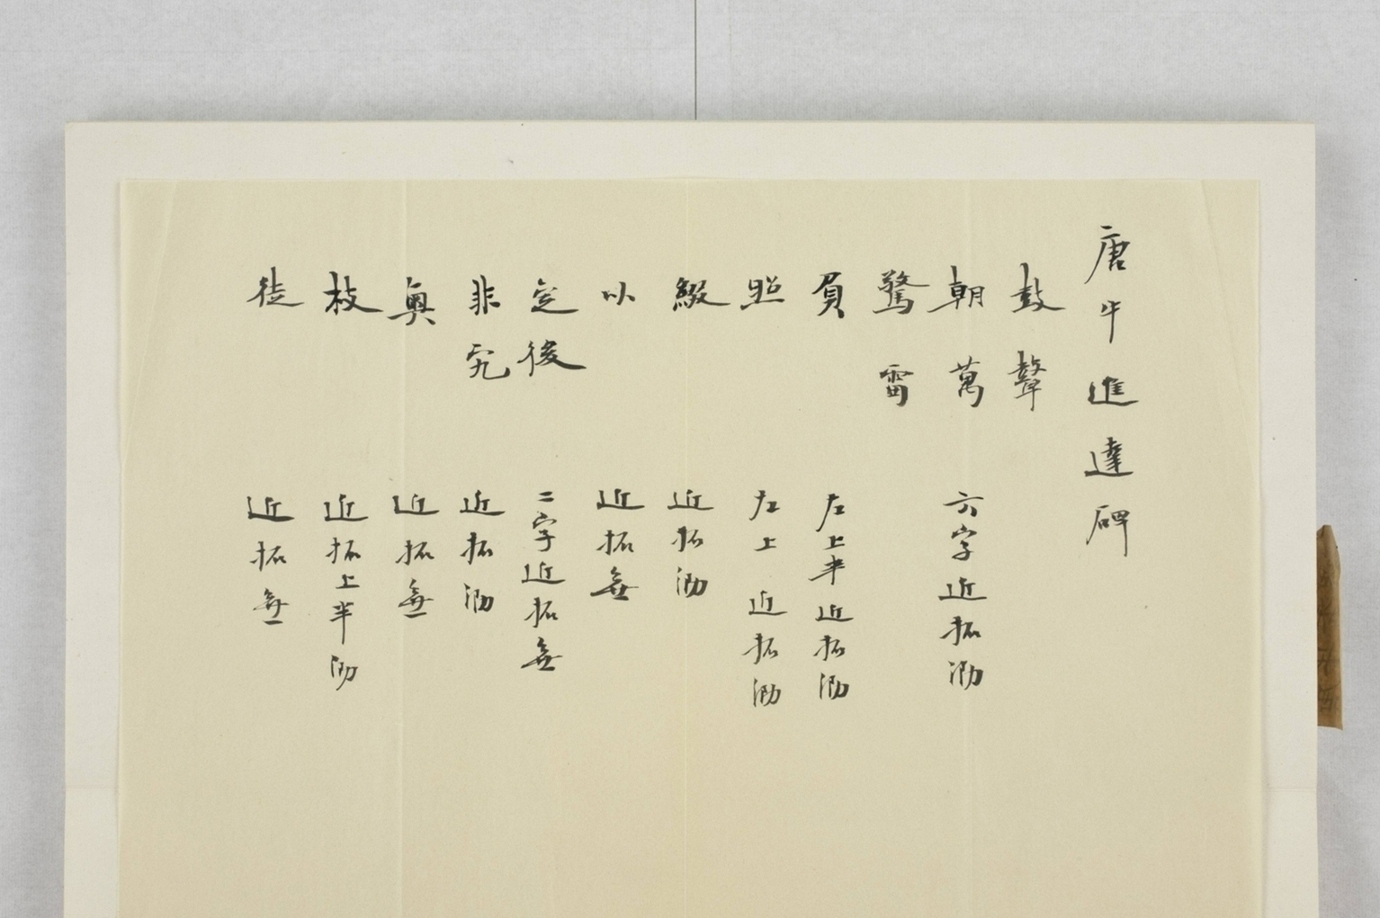 唐牛進達碑
鼓聲
朝萬 六字近拓泐
驚雷
員 左上半近拓泐
照 左上近拓泐
綴 近拓泐
以 近拓無
定後 二字近拓無
非究 近拓泐
輿 近拓無
枝 近拓上半泐
徒 近拓無